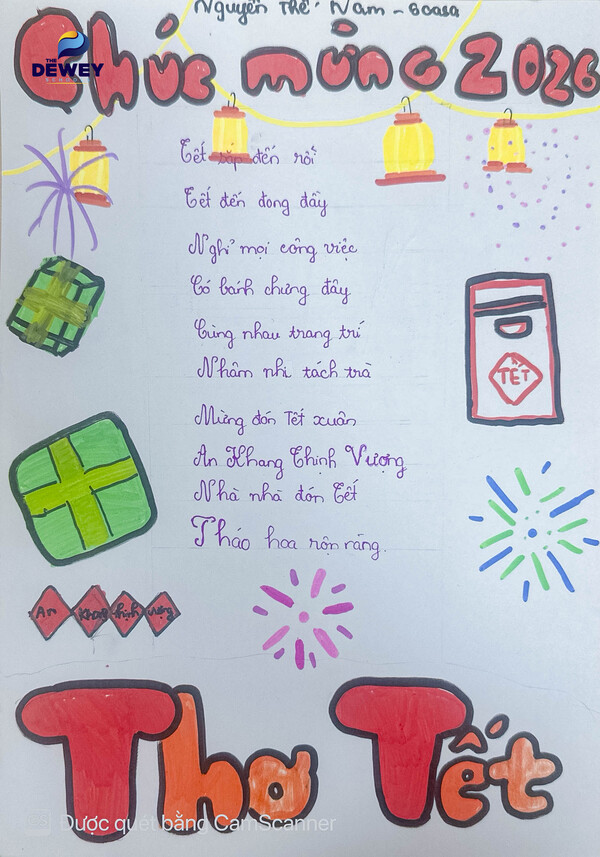 Nguyễn Thế Nam - 6casa
Chúc mừng 2026
THE
DEWEY
SCHOOLS
Tết sắp đến rồi
Tết đến đong đầy
Nghỉ mọi công việc
Có bánh chưng đây
Cùng nhau trang trí
Nhâm nhi tách trà
Mừng đón Tết xuân
An Khang Thịnh Vượng
Nhà nhà đón Tết
Tháo hoa rộn ràng.
TẾT
An Khang thịnh vượng
Thơ Tết
CS Được quét bằng CamScanner